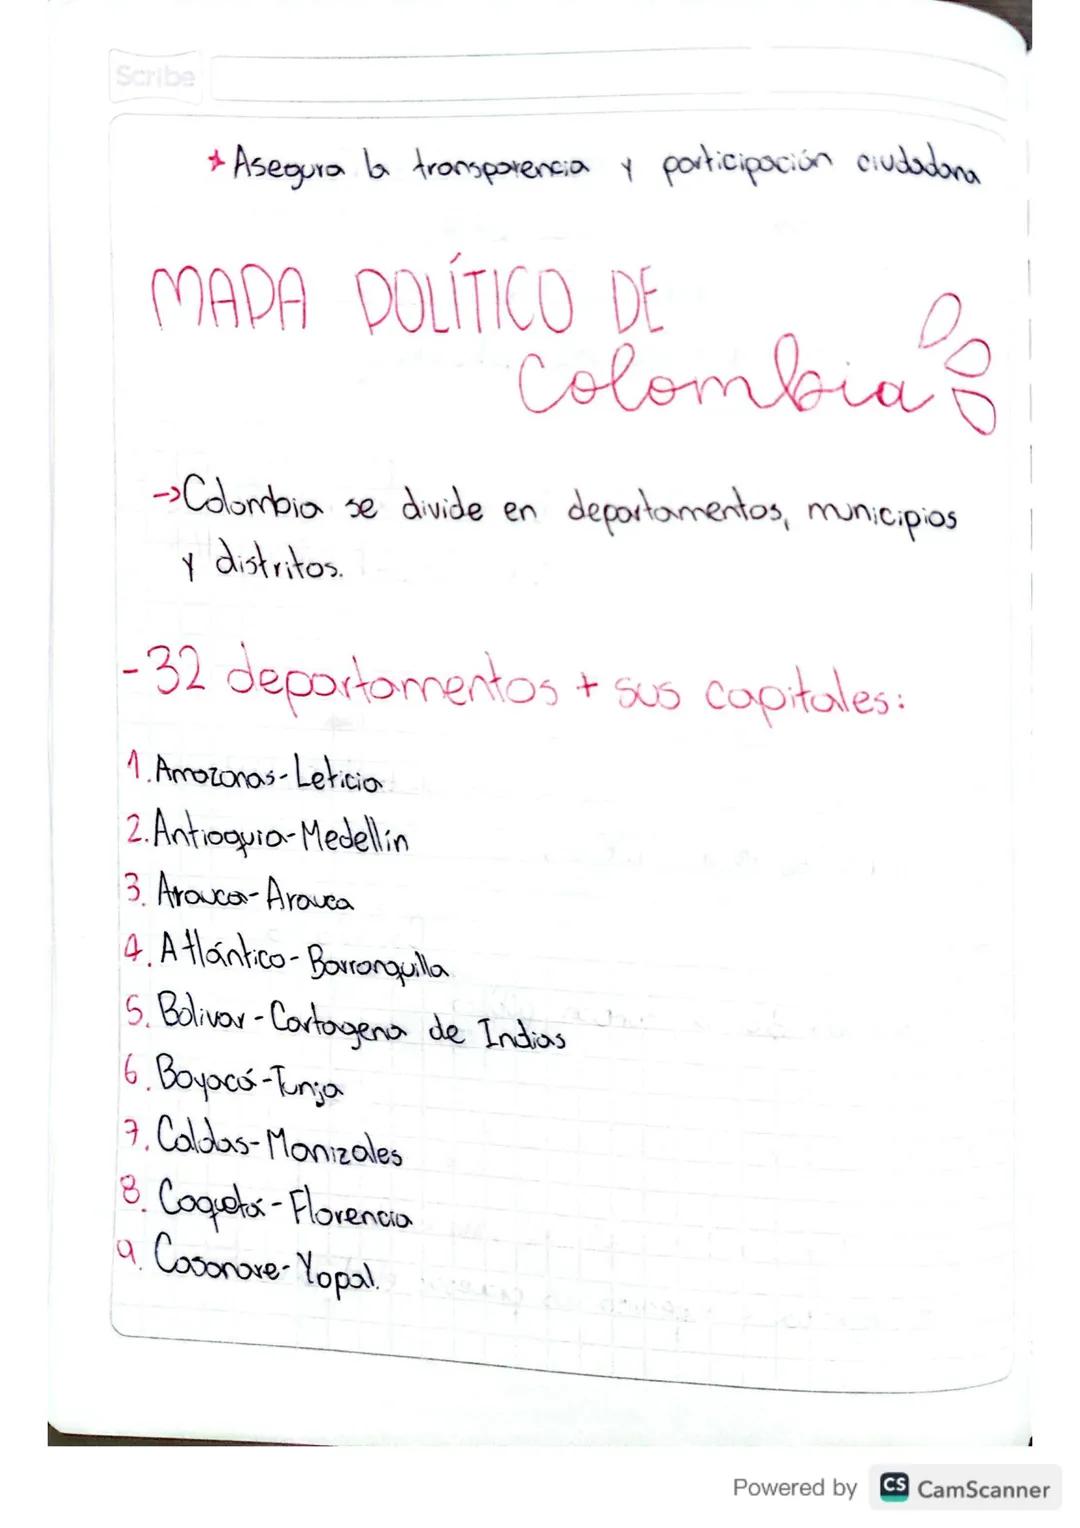 Scribe
* Asegura la transparencia y participación ciudadana
MAPA POLÍTICO DE
Colombia
->Colombia se divide en departamentos, municipios
y distritos.
-32 departamentos + sus capitales:
1. Amazonas-Leticia
2. Antioquia-Medellín
3. Arauca-Arauca
4. Atlántico-Barranquilla
5. Bolivar-Cartagena de Indias
6. Boyacá-Tunja
7. Caldas-Manizales
8. Caquetá-Florencia
9. Casanare-Yopal.
Powered by CS CamScanner